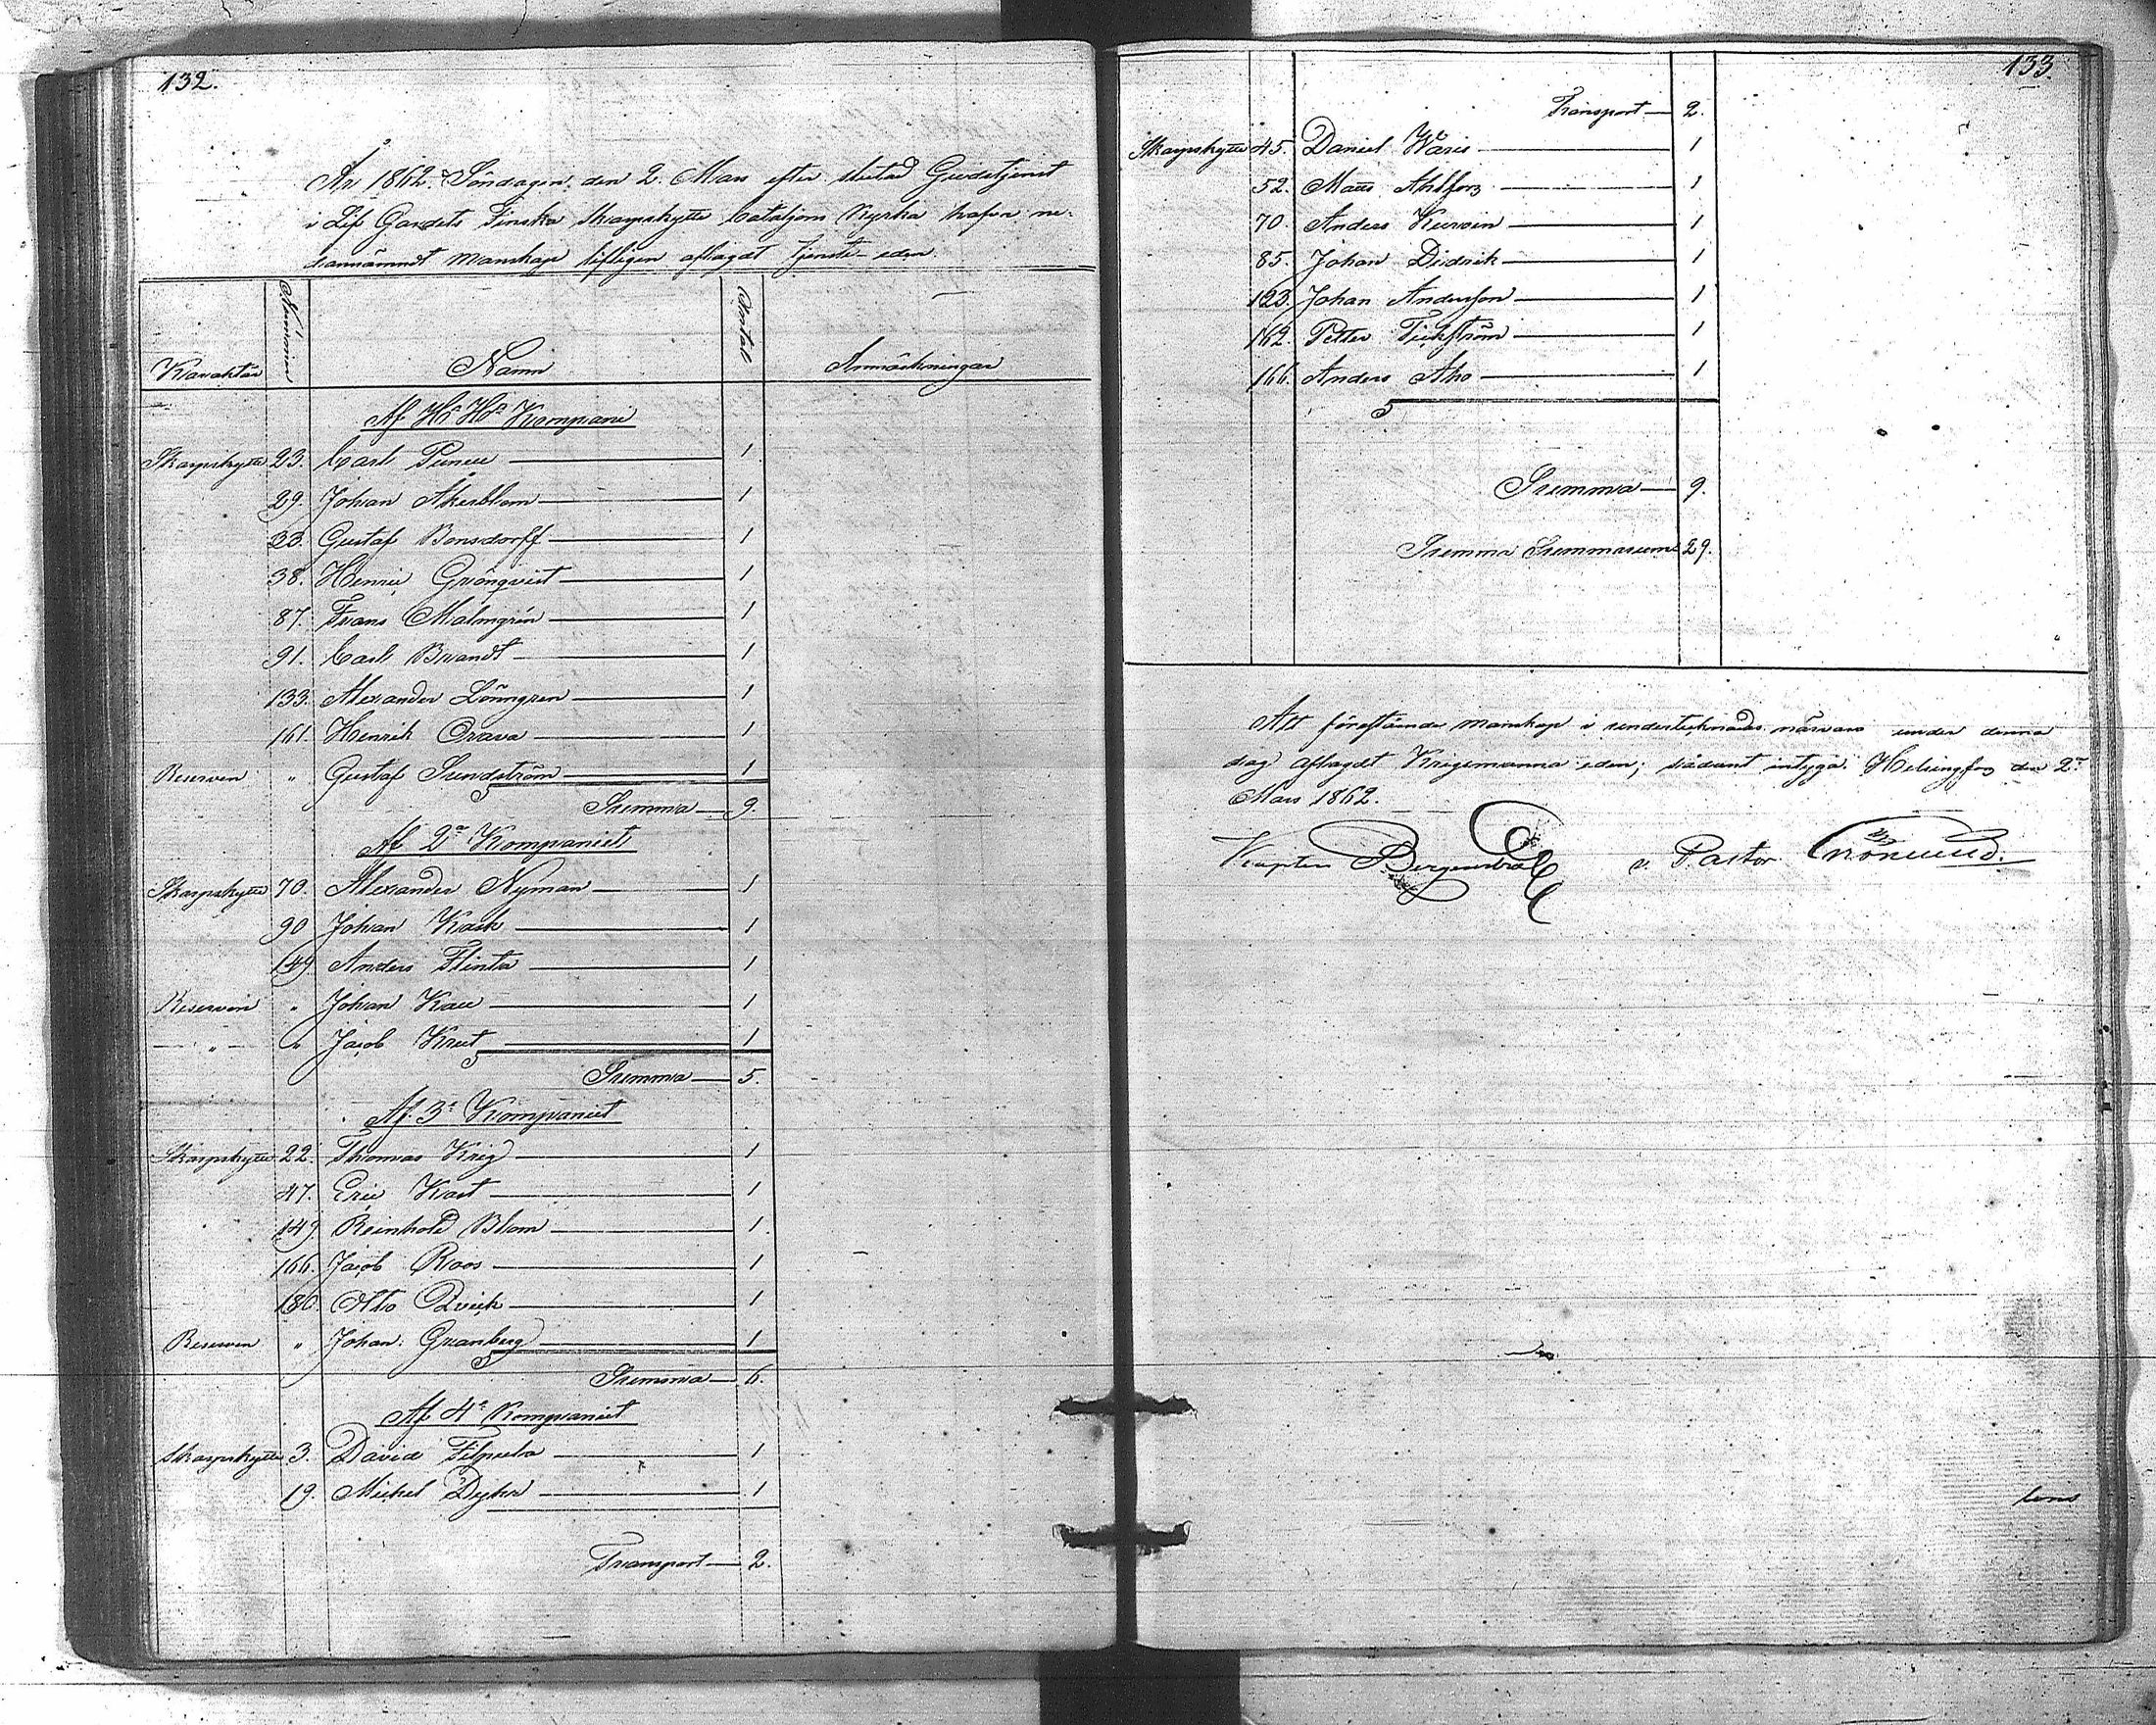 132.
År 1862. Söndagen den 2. Mars efter slutad Gudstjenst
i Lif Gardets Finska Skarpskytte bataljons Kyrka hafva ne-
danämndt manskap lifligen aflagdt tjenste-eden
Karaktär Numror Namn Antal Anmärkningar
Af Hs Hts Kompani
Skarpskytte 23. Carl 1
29. Johan Åkerblom 1
33. Gustaf Bonsdorff 1
38. Henric Grönqvist 1
87. Frans Malmgrén 1
91. Carl Brandt 1
133. Alexander Lönngren 1
161. Henrik Orava 1
Reserven " Gustaf Sundström 1
Summa 9.
Af 2a Kompaniet
Skarpskytte 70. Alexander Nyman 1
90 Johan Kask 1
149 Anders Flinta 1
Reserven " Johan 1
" " Jacob Krut 1
Summa 5.
Af 3e Kompaniet
Skarpskytte 22. Thomas Krig 1
47. Eric Kast 1
149 Reinhold Blom 1
166. Jacob Roos 1
180. Otto Qvick 1
Reserven " Johan Granberg 1
Summa 6.
Af 4e Kompaniet
Skarpskytte 3. David Filpula 1
19. Michel 1
Transport 2.
133.
Transport 2.
Skarpskytte 45. Daniel Waris 1
52. Matts Ahlfors 1
70. Anders 1
85. Johan Didrik 1
123. Johan Andersson 1
162. Petter 1
166. Anders Aho 1
Summa 9.
Summa Summarum 29.
Att förestående manskap i undertecknads närvaro under denna
dag aflagdt Krigsmanna eden; sådant intyga. Helsingfors den 2
Mars 1862.
Kapten v. Pastor